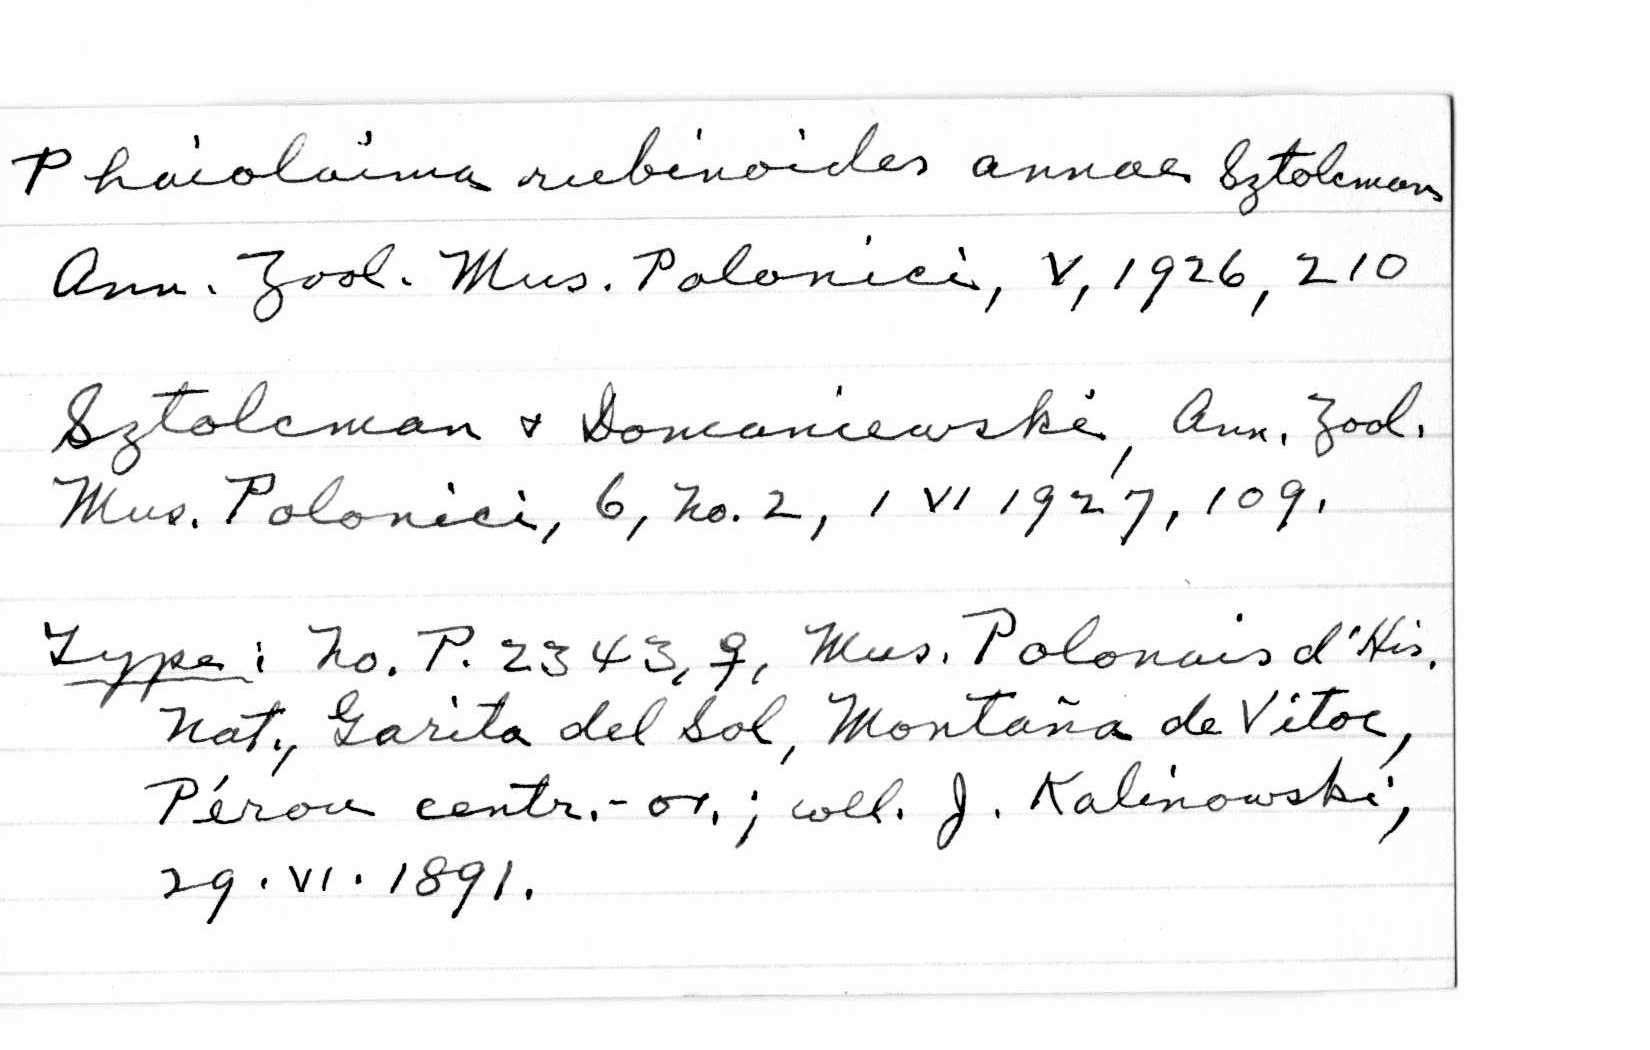 Phaiolaima rubinoides annae Sztolcman
Ann. Zool. Mus. Polonici, V, 1926, 210
Sztolcman & Domaniewski, Ann. Zool.
Mus. Polonici, 6, no. 2, 1 VI 1927, 109.
Type: No. P. 2343, ♀, Mus. Polonais d'His.
Nat., Garita del Sol, Montaña de Vitoc,
Pérou centr.-or.; coll. J. Kalinowski,
29. VI. 1891.